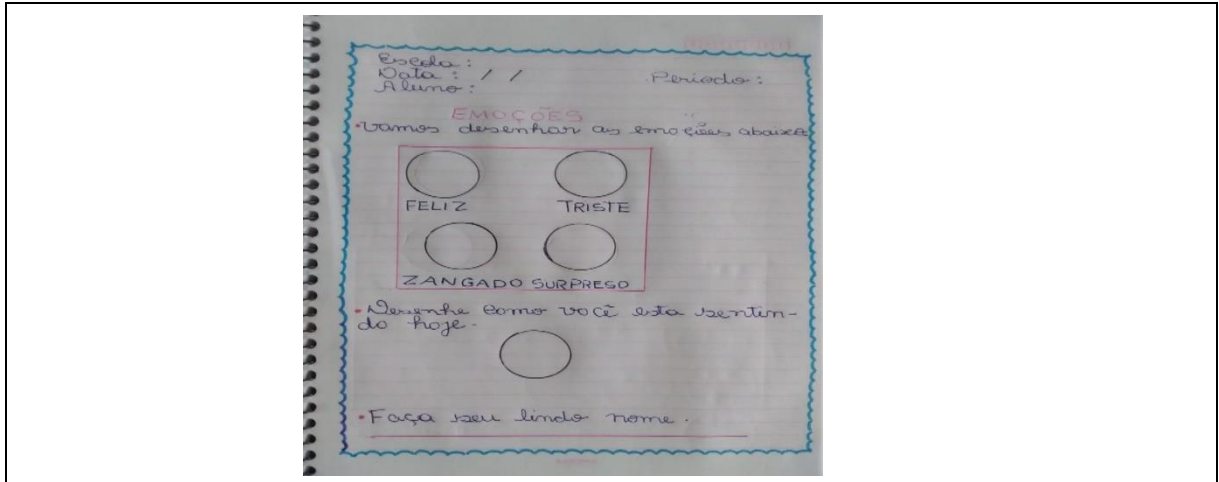 Escola :
Data : / / Periodo :
Aluno :
EMOÇÕES
• Vamos desenhar as emoções abaixo
FELIZ TRISTE
ZANGADO SURPRESO
• Desenhe como você esta senten-
do hoje.
• Faça seu lindo nome.